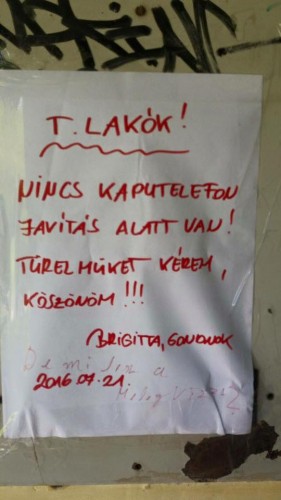 T. LAKÓK!
NINCS KAPUTELEFON
JAVÍTÁS ALATT VAN!
TÜRELMÜKET KÉREM,
KÖSZÖNÖM!!!
BRIGITTA, GONDNOK
De mi lesz a
2016.07.21.
Meleg Vízzel?